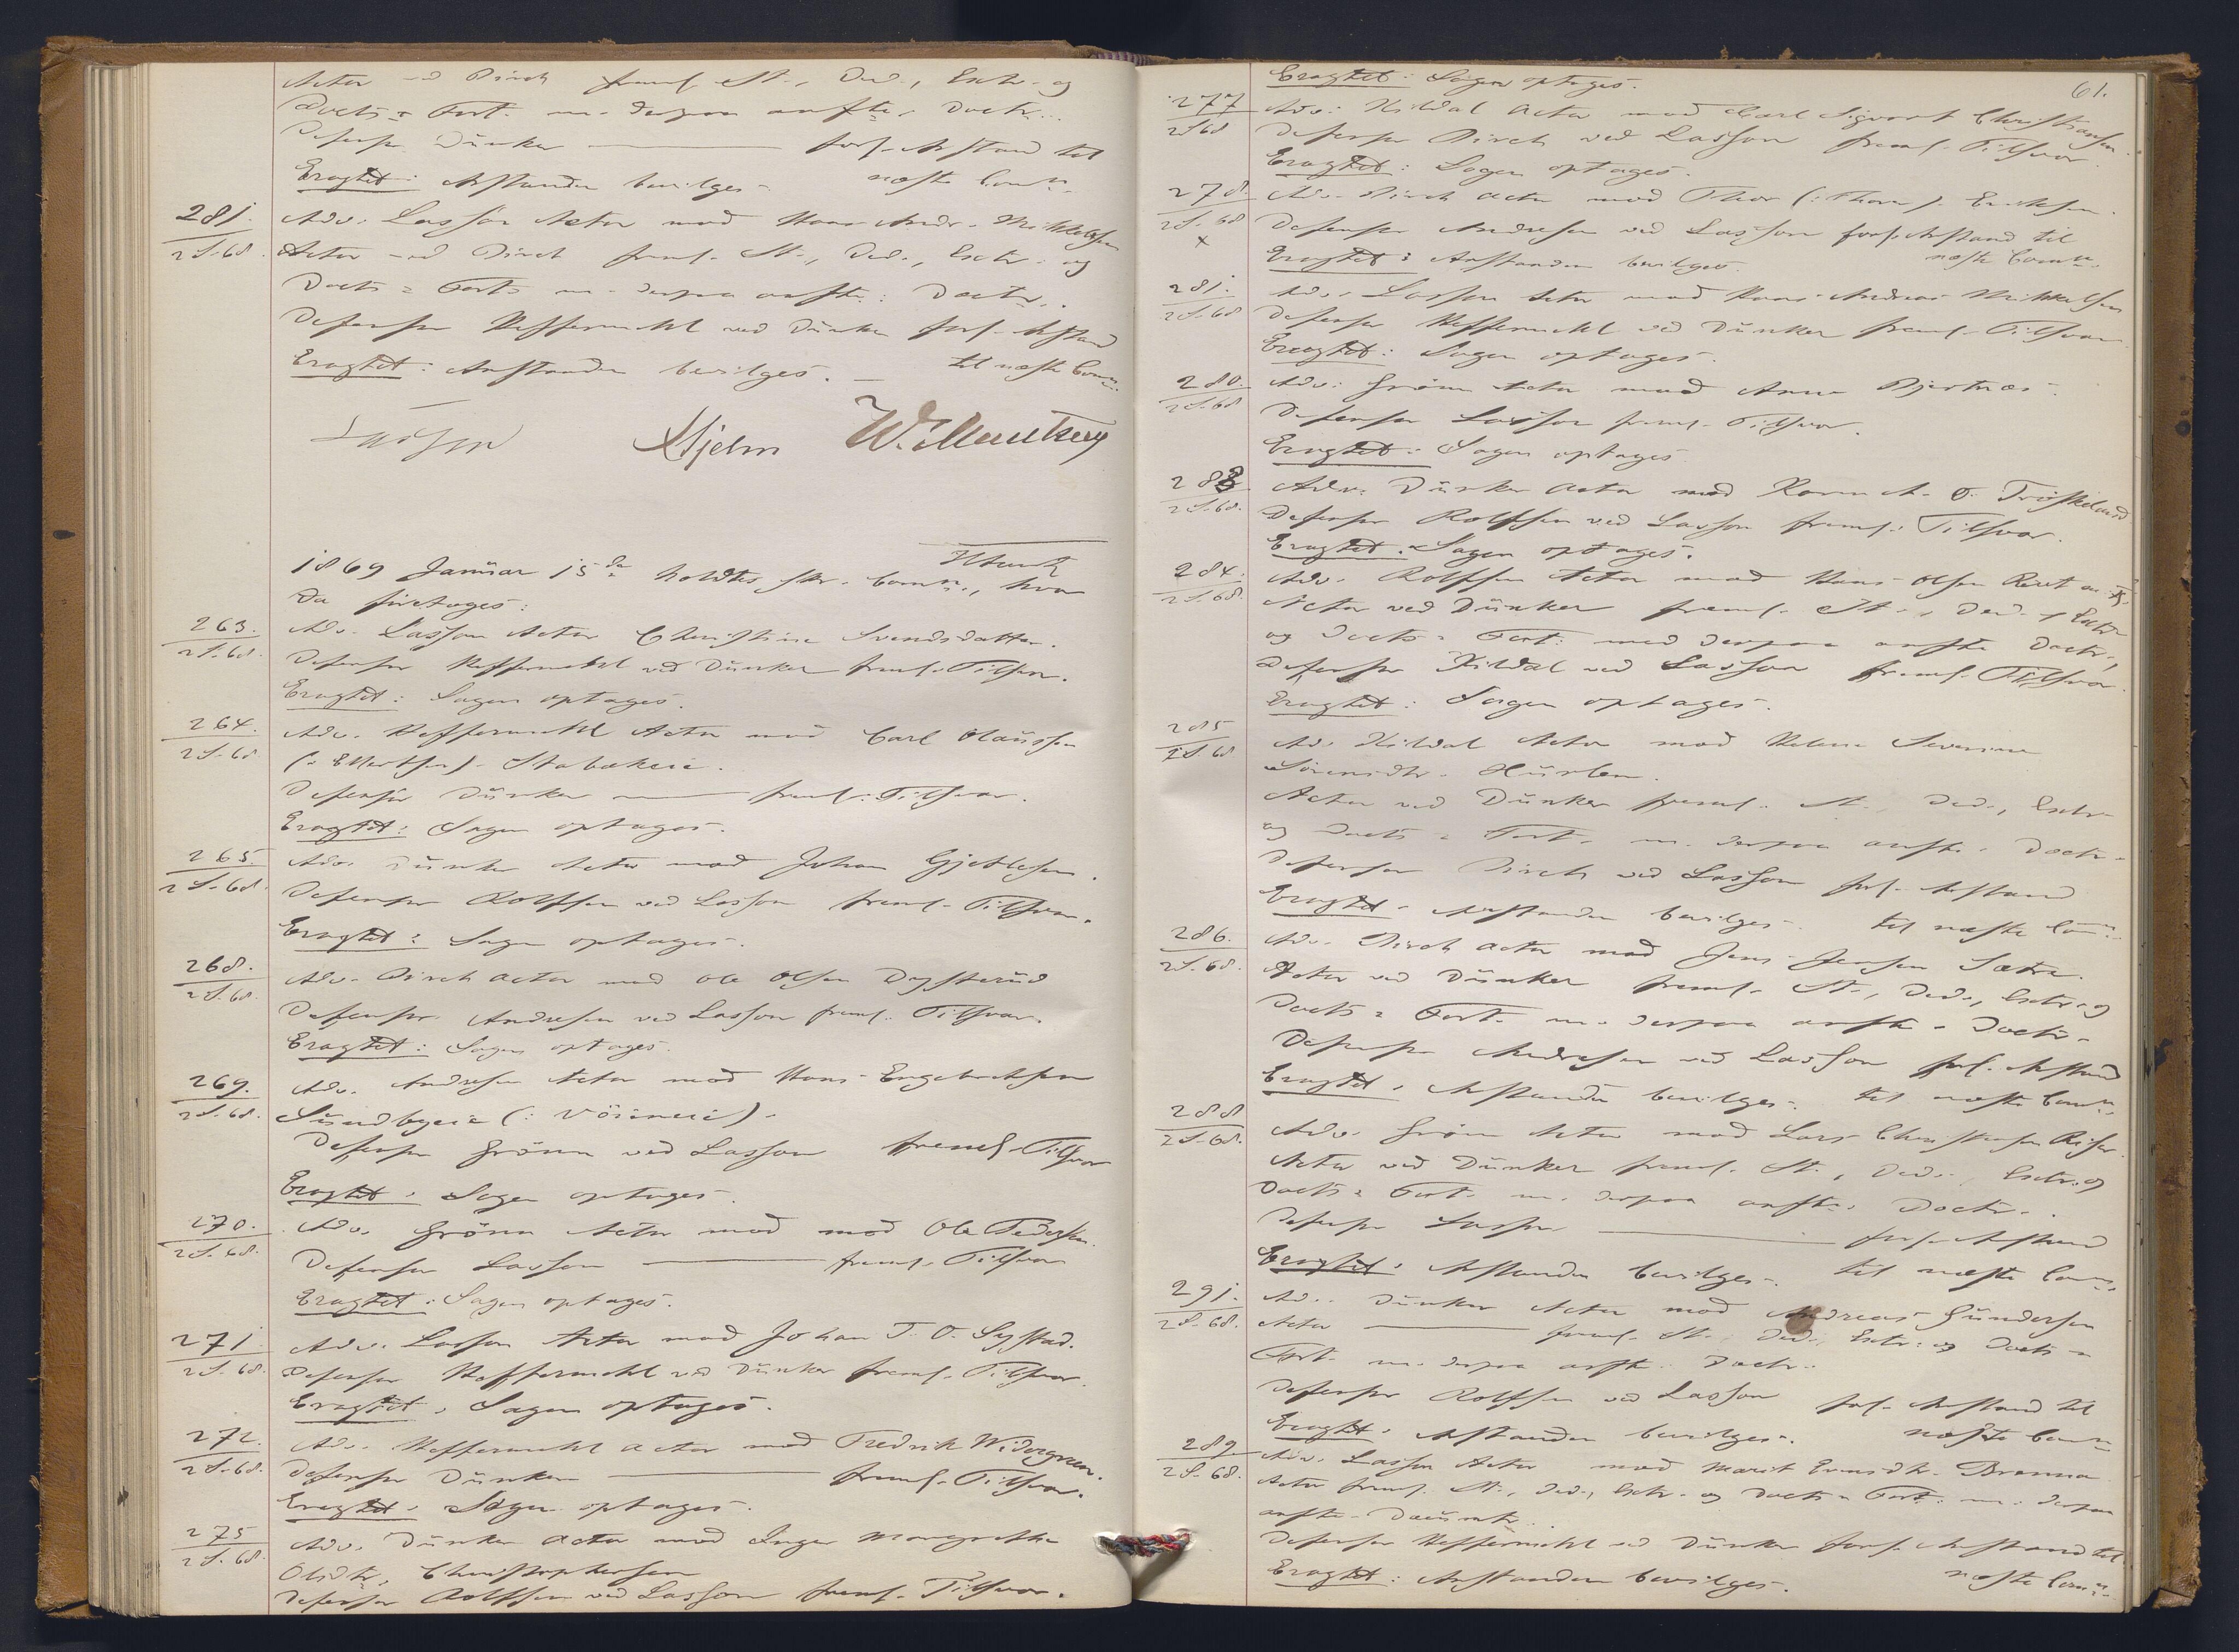 Actor ved Birch freml. St., Ded., Extr. og
Docts = Fort. m. derpaa anfte. Doctr.
Defensor Dunker forl. Anstand til
Eragtet: Anstanden bevilges. næste Comm.
281.
2 S. 68.
Adv. Lasson Actor mod Hans Andr. Mikkelsen
Actor ved Birch freml. St., Ded., Extr. og
Docts = Fort. m. derpaa anfte. Doctr.
Defensor Heffermehl ved Dunker forl. Anstand
Eragtet: Anstanden bevilges. til næste Comm.
Lasson Hjelm
1869 Januar 15de holdtes Comm., hvor
da foretoges:
263.
2 S. 68.
Adv. Lasson Actor Christine Svendsdatter.
Defensor Heffermehl ved Dunker freml. Tilsvar.
Eragtet: Sagen optages.
264.
2 S. 68
Adv. Heffermehl Actor mod Carl Olaussen
(: Ellertsen) Stabækeie.
Defensor Dunker freml. Tilsvar.
Eragtet: Sagen optages.
265.
2 S. 68.
Adv. Dunker Actor mod Johan Gjetlesen.
Defensor Rolffsen ved Lasson freml. Tilsvar.
Eragtet: Sagen optages.
268.
2 S. 68.
Adv. Birch Actor mod Ole Olsen Dysterud
Defensor Andresen ved Lasson freml. Tilsvar.
Eragtet: Sagen optages.
269.
2 S. 68.
Adv. Andresen Actor mod Hans Engebretsen
Sundbyeie (:
Defensor Grönn ved Lasson freml. Tilsvar
Eragtet: Sagen optages.
270.
2 S. 68.
Adv. Grönn Actor mod mod Ole Pedersen.
Defensor Lasson freml. Tilsvar
Eragtet: Sagen optages.
271
2 S. 68.
Adv. Lasson Actor mod Johan T. O. Systad.
Defensor Heffermehl ved Dunker freml. Tilsvar.
Eragtet: Sagen optages.
272.
2 S. 68.
Adv. Heffermehl Actor mod Fredrik Widergreen.
Defensor Dunker freml. Tilsvar.
Eragtet: Sagen optages.
275
2 S. 68.
Adv. Dunker Actor mod Inger Margrethe
Olsdtr. Christophersen
Defensor Rolffsen ved Lasson freml. Tilsvar.
61.
Eragtet: Sagen optages.
277
2 S 68
Adv. Kildal Actor mod Carl Sigvart Christiansen.
Defensor Birch ved Lasson freml. Tilsvar.
Eragtet: Sagen optages.
278.
2 S. 68
x
Adv. Birch Actor mod Thor (: Thorn) Eriksen.
Defensor Andresen ved Lasson forl. Anstand til
Eragtet: Anstanden bevilges. næste Comm.
281.
2 S. 68
Adv. Lasson Actor mod Hans Andreas Mikkelsen
Defensor Heffermehl ved Dunker freml. Tilsvar.
Eragtet: Sagen optages.
280.
2 S. 68
Adv. Grönn Actor mod Anne Bjertnæs.
Defensor Lasson freml. Tilsvar.
Eragtet: Sagen optages.
283
2 S. 68.
Adv. Dunker Actor mod Karen A. O. Tröskeland.
Defensor Rolffsen ved Lasson freml. Tilsvar.
Eragtet: Sagen optages.
284.
2 S. 68.
Adv. Rolffsen Actor mod Hans Olsen
Actor ved Dunker freml. St., Ded., Extr.
og Docts = Fort. med derpaa anfte Doctr.,
Defensor Kildal ved Lasson freml. Tilsvar.
Eragtet: Sagen optages.
285
2 S. 68
Ad. Kildal Actor mod Helene Severine
Sörensdtr.
Actor ved Dunker freml. St., Ded., Extr.
og Docts = Fort. m. derpaa anfte. Doctr.
Defensor Birch ved Lasson forl. Anstand
Eragtet: Anstanden bevilges. til næste Comm.
286.
2 S. 68.
Adv. Birch Actor mod Jens Jensen Sætre.
Actor ved Dunker freml. St., Ded., Extr. og
Docts = Fort. m. derpaa anfte. Doctr.
Defensor Andresen ved Lasson forl. Anstand
Eragtet: Anstanden bevilges. til næste Comm.
288
2 S. 68.
Adv. Grönn Actor mod Lars Christensen
Actor ved Dunker freml. St., Ded., Extr. og
Docts = Fort. m. derpaa anfte. Doctr.
Defensor Lasson forl. Anstand
Eragtet: Anstanden bevilges. til næste Comm.
291.
2 S. 68.
Ad. Dunker Actor mod Andreas Gundersen
Actor freml. St., Ded., Extr. og Docts =
Fort. m. derpaa anfte. Doctr.
Defensor Rolffsen ved Lasson forl. Anstand til
Eragtet: Anstanden bevilges. næste Comm.
289
2 S. 68.
Adv. Lasson Actor mod Marit Evensdtr. Brenna
Actor freml. St., Ded., Extr. og Docts = Fort. m. derpaa
anfte. Docum.
Defensor Heffermehl ved Dunker forl. Anstand til
Eragtet: Anstanden bevilges. næste Comm.